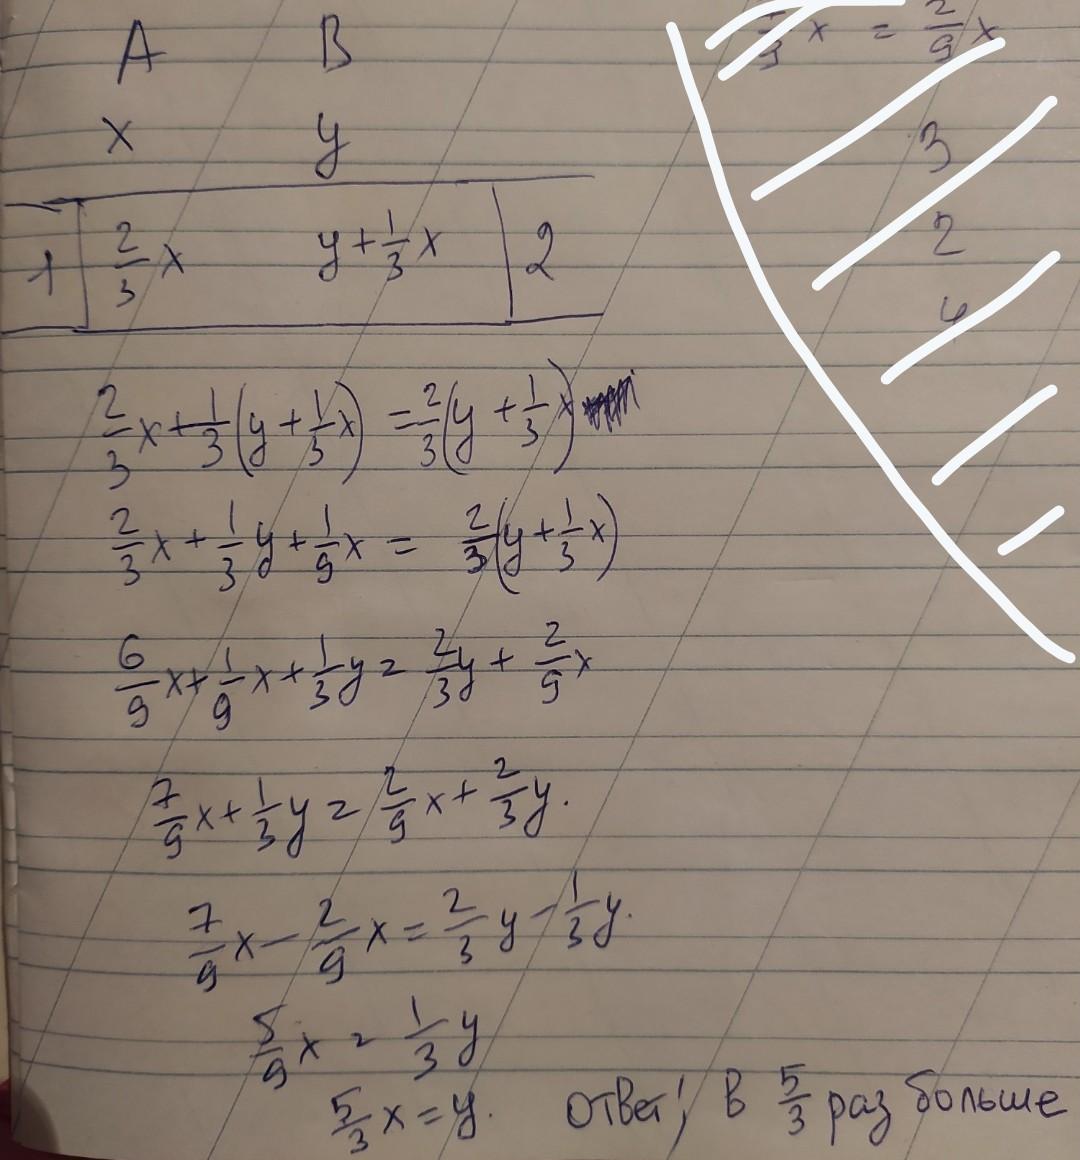 A B
x y
1 2/3 x y + 1/3 x 2
2/3 x + 1/3 (y + 1/3 x) = 2/3 (y + 1/3 x)
2/3 x + 1/3 y + 1/9 x = 2/3 (y + 1/3 x)
6/9 x + 1/9 x + 1/3 y = 2/3 y + 2/9 x
7/9 x + 1/3 y = 2/9 x + 2/3 y.
7/9 x - 2/9 x = 2/3 y - 1/3 y.
5/9 x = 1/3 y
5/3 x = y. Ответ: в 5/3 раз больше
x = 2/9 x
3
2
4